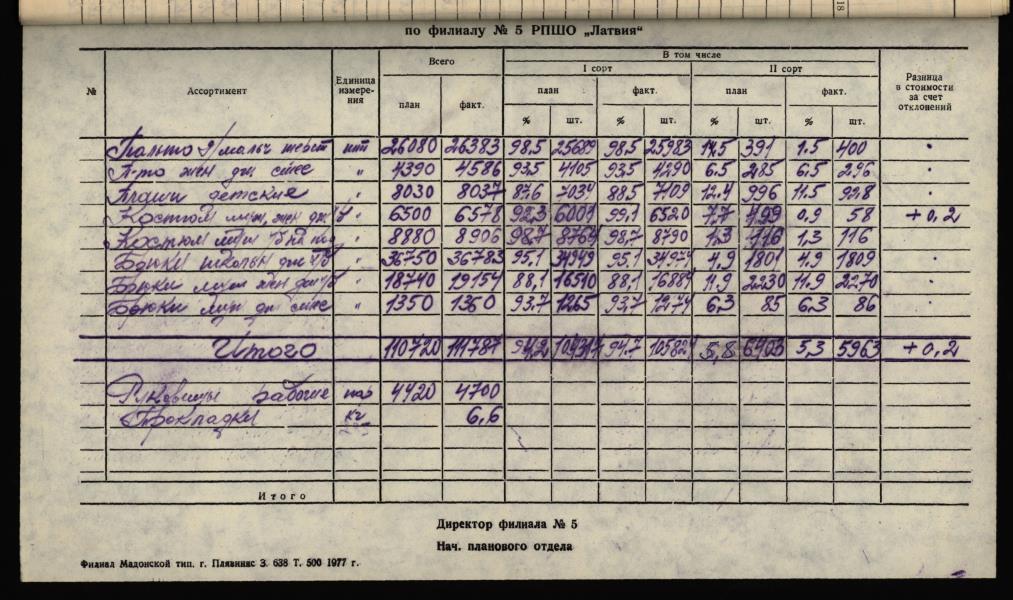 18
по филиалу № 5 РПШО „Латвия“
№ Ассортимент Единица измере-ния Всего В том числе Разница в стоимости за счет отклонений
I сорт II сорт
план факт. план факт. план факт.
% шт. % шт. % шт. % шт.
Пальто д/мальч шерст шт 26080 26383 98.5 25689 98.5 25983 1.5 391 1.5 400
П-то жен дм смес " 4390 4586 93.5 4105 93.5 4290 6.5 285 6.5 296
Плащи детские " 8030 8037 87.6 7034 88.5 7109 12.4 996 11.5 928
Костюм муж, жен " 6500 6578 92.3 6001 99,1 6520 7.7 499 0.9 58 +0,2
Костюм муж " 8880 8906 98.7 8764 98,7 8790 1,3 116 1,3 116
Брюки школьн " 36750 36783 95,1 34949 95,1 34974 4,9 1801 4.9 1809
Брюки муж жен " 18740 19154 88,1 16510 88,1 16884 11.9 2230 11.9 2270
Брюки муж дм смес " 1350 1360 93.7 1265 93.7 1274 6.3 85 6.3 86
Итого 110720 111787 94,2 104317 94.7 105824 5,8 6403 5,3 5963 +0,2
Рукавицы рабочие пар 4420 4700
Прокладки кг 6,6
Итого
Директор филиала № 5
Нач. планового отдела
Филиал Мадонской тип. г. Плявиняс З. 638 Т. 500 1977 г.